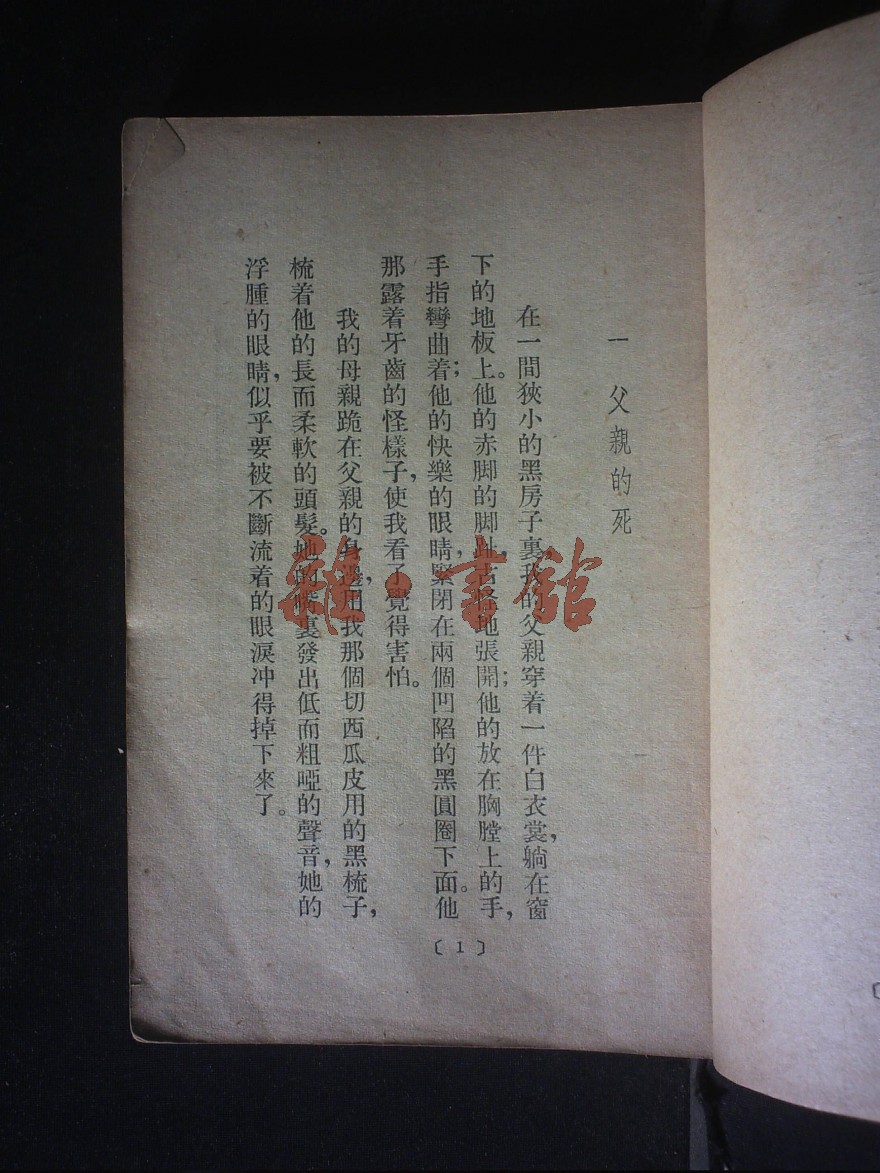 一 父親的死
在一間狹小的黑房子裏,我的父親穿着一件白衣裳,躺在窗
下的地板上。他的赤脚的脚趾,古怪地張開;他的放在胸膛上的手,
手指彎曲着;他的快樂的眼睛,緊閉在兩個凹陷的黑圓圈下面。他
那露着牙齒的怪樣子,使我看了覺得害怕。
我的母親跪在父親的身邊,用我那個切西瓜皮用的黑梳子,
梳着他的長而柔軟的頭髮。她的嘴裏發出低而粗啞的聲音,她的
浮腫的眼睛,似乎要被不斷流着的眼淚冲得掉下來了。
〔1〕
雜·書館